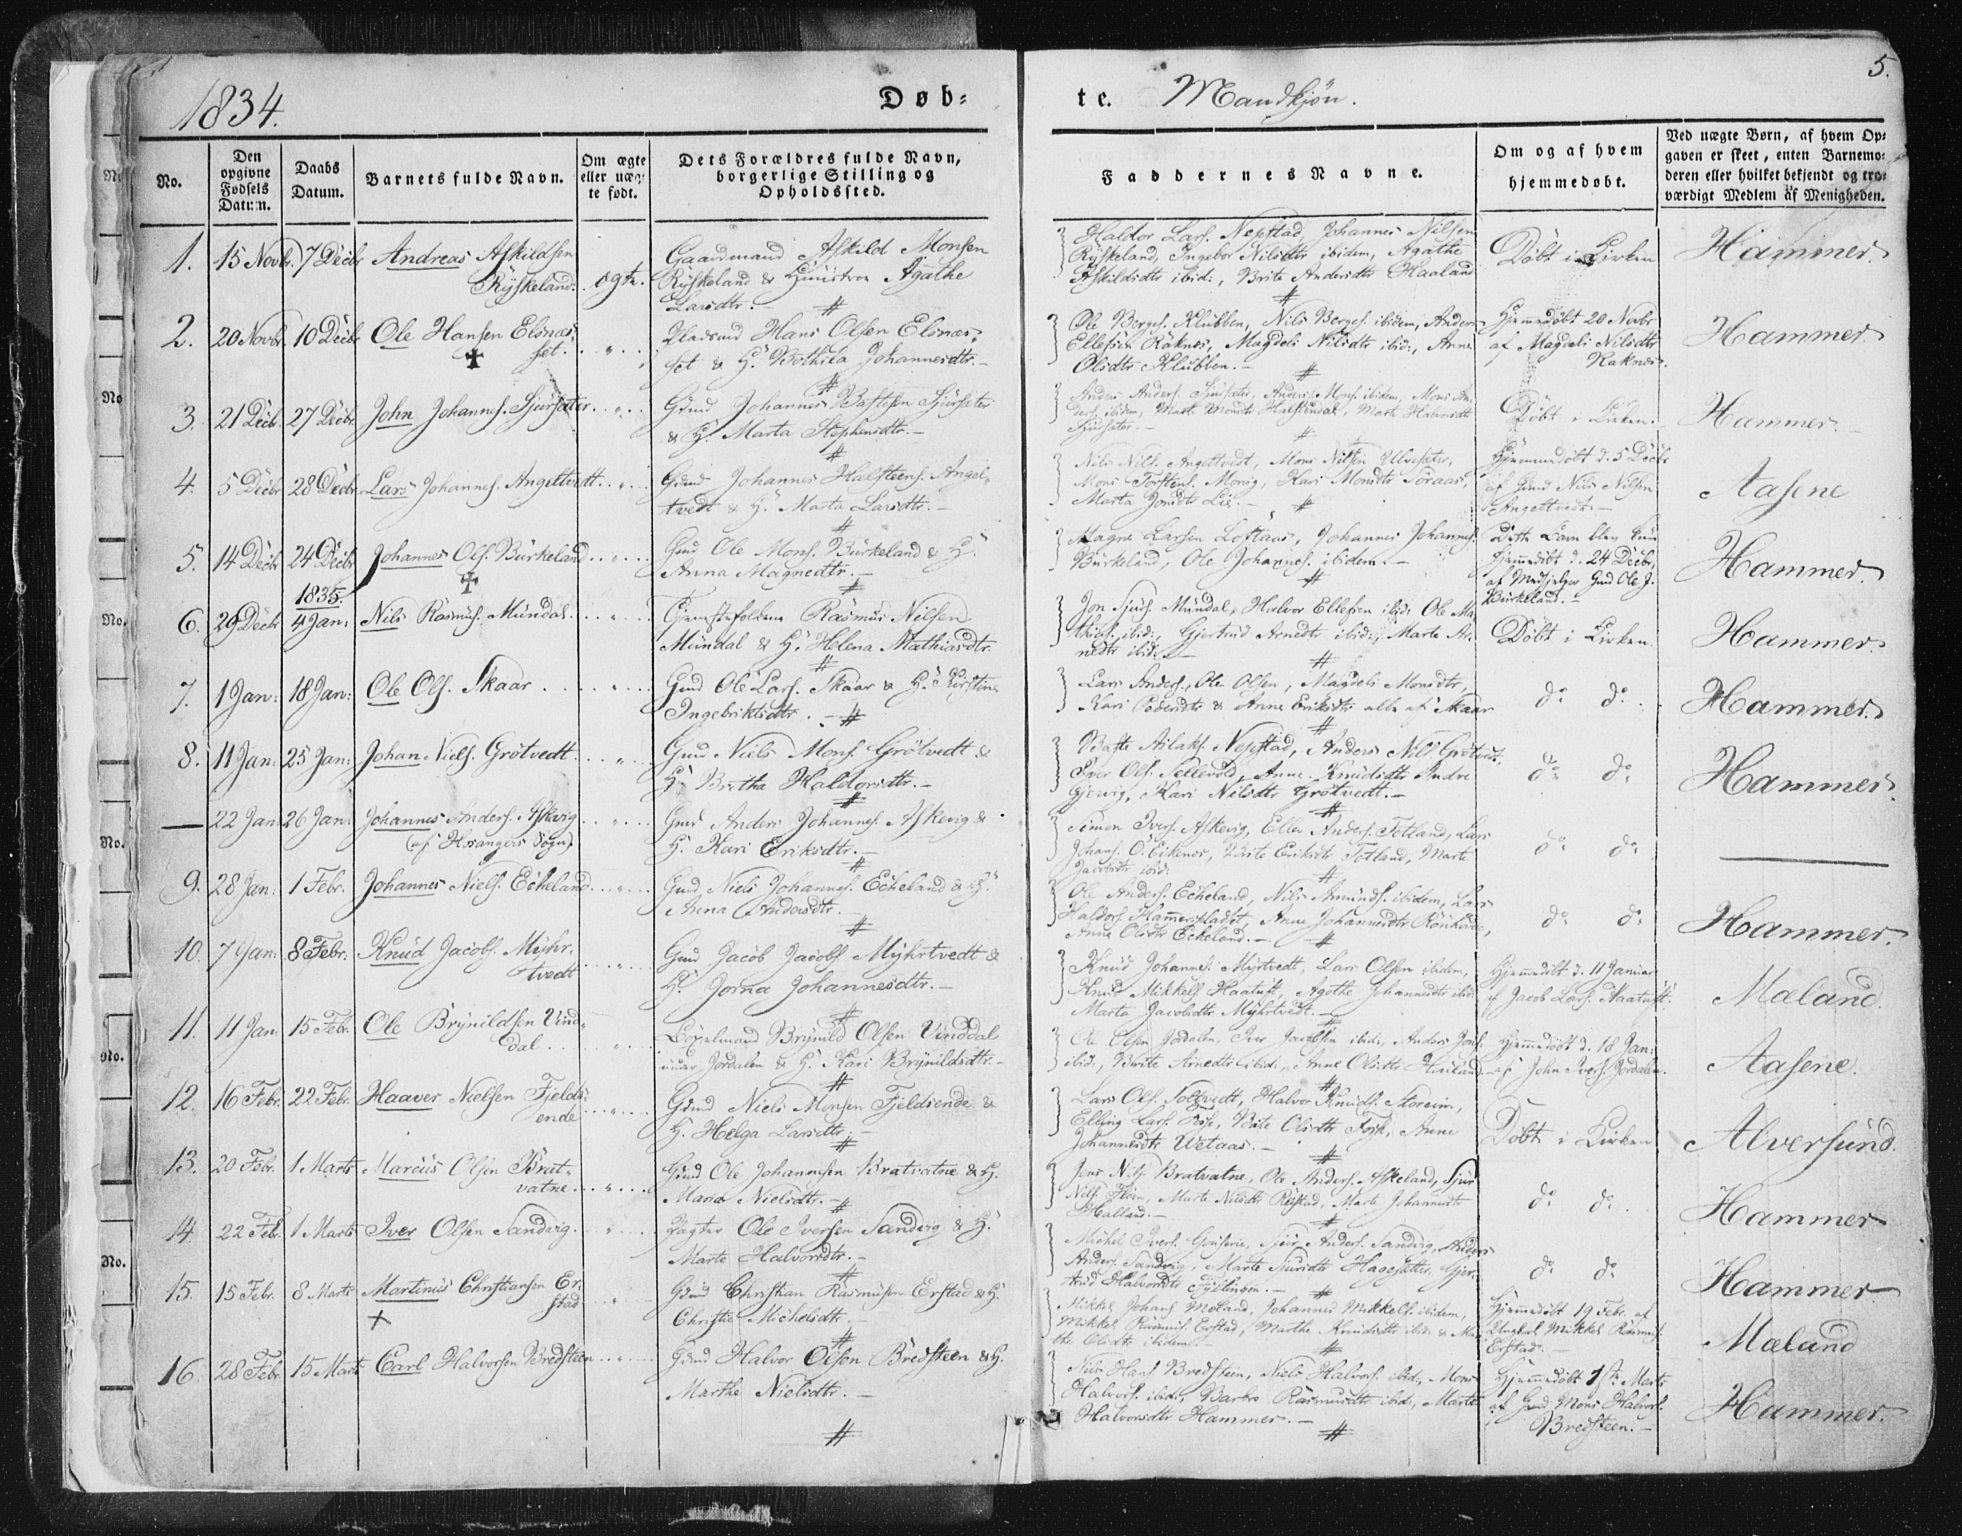 1834.
Døb-
te. Mandkjön.
5.
No.
Den opgivne Fødsels Datum.
Daabs Datum.
Barnets fulde Navn.
Om ægte eller uægte født.
Dets Forældres fulde Navn, borgerlige Stilling og Opholdssted.
Faddernes Navne.
Om og af hvem hjemmedøbt.
Ved uægte Børn, af hvem Opgaven er skeet, enten Barnemoderen eller hvilket bekjendt og troværdigt Medlem af Menigheden.
1. 15 Novb. 7 Decbr Andreas Askildsen
Ryskeland. ægte.
Gaardmand Askild Monsen
Ryskeland & Hustroe Agathe
Larsdtr.
Haldor Lars. Nepstad, Johannes Nilsen
Ryskeland, Ingebor Nilsdtr ibidem, Agathe
Askildsdtr ibid:, Brite Andersdtr Haaland
Döbt i Kirken
Hammer.
2. 20 Novb. 10 Decbr Ole Hansen Elsnæs
set. "
Hans Olsen Elsnæs-
set & H. Bothila Johannesdtr.
Ole Berges. Klubben, Nils Berges. ibidem, Anders
Ellefsen Raknes, Magdeli Nilsdtr ibid:, Anne
Olsdtr Klubben.
Hjemmedöbt 20 Novbr
af Magdeli Nilsdtr
Raknes.
Hammer.
3. 21 Decb. 27 Decbr. John Johannes. Sjursæter "
Gmd Johannes Bastesen Sjursæter
& H. Marta Stephensdtr.
Döbt i Kirken.
Hammer.
4. 5 Decbr 28 Decbr Lars Johannes. Angeltvedt "
Gmd Johannes Halsteens. Angel-
tvedt & H. Marta Larsdtr.
Nils Nils. Angeltvedt, Mons Nilsen Ulvesæter,
Mons Torstens. Monig, Kari Monsdtr Söraas,
Marta Jonsdtr Lie.
Hjemmedöbt d. 5 Decbr
af Gmd Nils Nilsen
Angeltvedt.
Aasene
5. 14 Decbr 24 Decbr Johannes Ols. Burkeland "
Gmd Ole Mons. Burkeland & H.
Anna Magnedtr.
Magne Larsen Loftaas, Johannes Johannes.
Burkeland, Ole Johannes. ibidem.
Dette Barn blev kun
hjemmedöbt d. 24 Decbr,
af Gmd Ole J.
Burkeland.
Hammer.
1835.
6. 29 Decbr 4 Jan: Nils Rasmus. Mundal "
Tjenestefolkene Rasmus Nilsen
Mundal & H. Helena Mathiasdtr.
Jon Sjurs. Mundal, Halvor Ellefsen ibid: Ole Ma-
thias. ibid:, Gjertrud Arnedtr ibid:, Marte Ar-
nedtr ibid:
Döbt i Kirken
Hammer.
7. 1 Jan: 18 Jan: Ole Ols. Skaar "
Gmd Ole Lars. Skaar & H. Kirstine
Ingebriktsdtr.
Lars Anders., Ole Olsen, Magdeli Monsdtr,
Kari Pedersdtr & Anne Eriksdtr alle af Skaar
do do
Hammer.
8. 11 Jan: 25 Jan: Johan Niels. Grötvedt "
Gmd Niels Mons. Grötvedt &
H. Britha Haldorsdtr.
Baste Aslaks. Nepstad, Anders Nils. Grötvedt,
Iver Ols. Sellevold, Anne Knudsdtr Indre
Gjervig, Kari Nilsdtr Grötvedt.
do do
Hammer.
— 22 Jan: 26 Jan: Johannes Anders. Askevig
(af Hosangers Sogn) "
Gmd Anders Johannes. Askevig &
H. Kari Eriksdtr.
Simon Ivers. Askevig, Ellev Anders. Totland, Lars
Johans. Eikenes, Brite Eriksdtr Totland, Marte
Jacobsdtr ibid:
do do
9. 28 Jan: 1 Febr. Johannes Niels. Eckeland "
Gmd Niels Johannes. Eckeland & H.
Anna Andersdtr.
Ole Anders. Eckeland, Nils Amunds. ibidem, Lars
Haldors. Hammerspladset, Anne Johannesdtr
Anne Olsdtr Eckeland.
do do
Hammer.
10. 7 Jan: 8 Febr. Knud Jacobs. Myhr-
tvedt "
Gmd Jacob Jacobs. Myhrtvedt &
H. Jorna Johannesdtr.
Knud Johannes. Myrtvedt, Lars Olsen ibidem,
Knud Mikkels. Haatuft, Agathe Johannesdtr ibid:
Marta Jacobsdtr Myhrtvedt.
Hjemmedöbt d. 11 Januar
af Jacob Lars. Haatuft.
Mæland.
11. 11 Jan: 15 Febr. Ole Brynildsen Vind-
dal "
Brynild Olsen Vinddal
under Jordalen & H. Kari Brynildsdtr.
Ole Olsen Jordalen, Iver Jacobsen ibid:, Anders Jons.
ibid:, Brite Arnedtr ibid:, Anne Olsdtr
Hjemmedöbt d. 18 Jan:
af John Ivers. Jordalen.
Aasene.
12. 16 Febr. 22 Febr. Haaver Nielsen Fjelds-
ende "
Gmd Niels Monsen Fjeldsende &
H. Helga Larsdtr.
Lars Ols. Toltvedt, Halvor Knuds. Storeim,
Elling Lars. Brite Olsdtr Anne
Johannesdtr Wetaas.
Döbt i Kirken
Alversund.
13. 20 Febr. 1 Marts Marcus Olsen Brat-
vatne "
Gmd Ole Johannesen Bratvatne & H.
Maria Nielsdtr.
Jens Nils. Bratvatne, Ole Anders. Askeland, Sjur
Nils. Marte Nilsdtr Marte Johannesdtr
Halland.
do do
Hammer
14 22 Feb. 1 Marts Iver Olsen Sandvig. "
Ole Iversen Sandvig & H.
Marte Halvorsdtr.
Michel Ivers. Sjur Anders. Sandvig, Anders
Anders. Sandvig, Marte Sjursdtr Hagesætter, Gjer-
trud Halvorsdtr
do do
Hammer
15. 15 Febr. 8 Marts Martinus Christiansen Er-
stad "
Gmd Christian Rasmusen Erstad & H.
Christie Michelsdtr.
Mikkel Johans. Mæland, Johannes Mikkels. ibidem,
Mikkel Rasmus. Erstad, Marthe Knudsdtr ibid: & Mar-
the Olsdtr ibidem.
Hjemmedöbt 19 Febr. af
Ungkarl Mikkel Rasmus.
Erstad.
Mæland
16. 28 Febr. 15 Marts Carl Halvorsen Bredsteen "
Gmd Halvor Olsen Bredsteen & H.
Marthe Nielsdtr.
Nils Hans. Bredsteen, Niels Halvors. ibid:, Mons
Halvors. ibid:, Barbro Rasmusdtr ibid:, Marte
Halvorsdtr Hammer.
Hjemmedöbt 1ste Marts
af Gmd Mons Halvors.
Bredsteen.
Hammer.